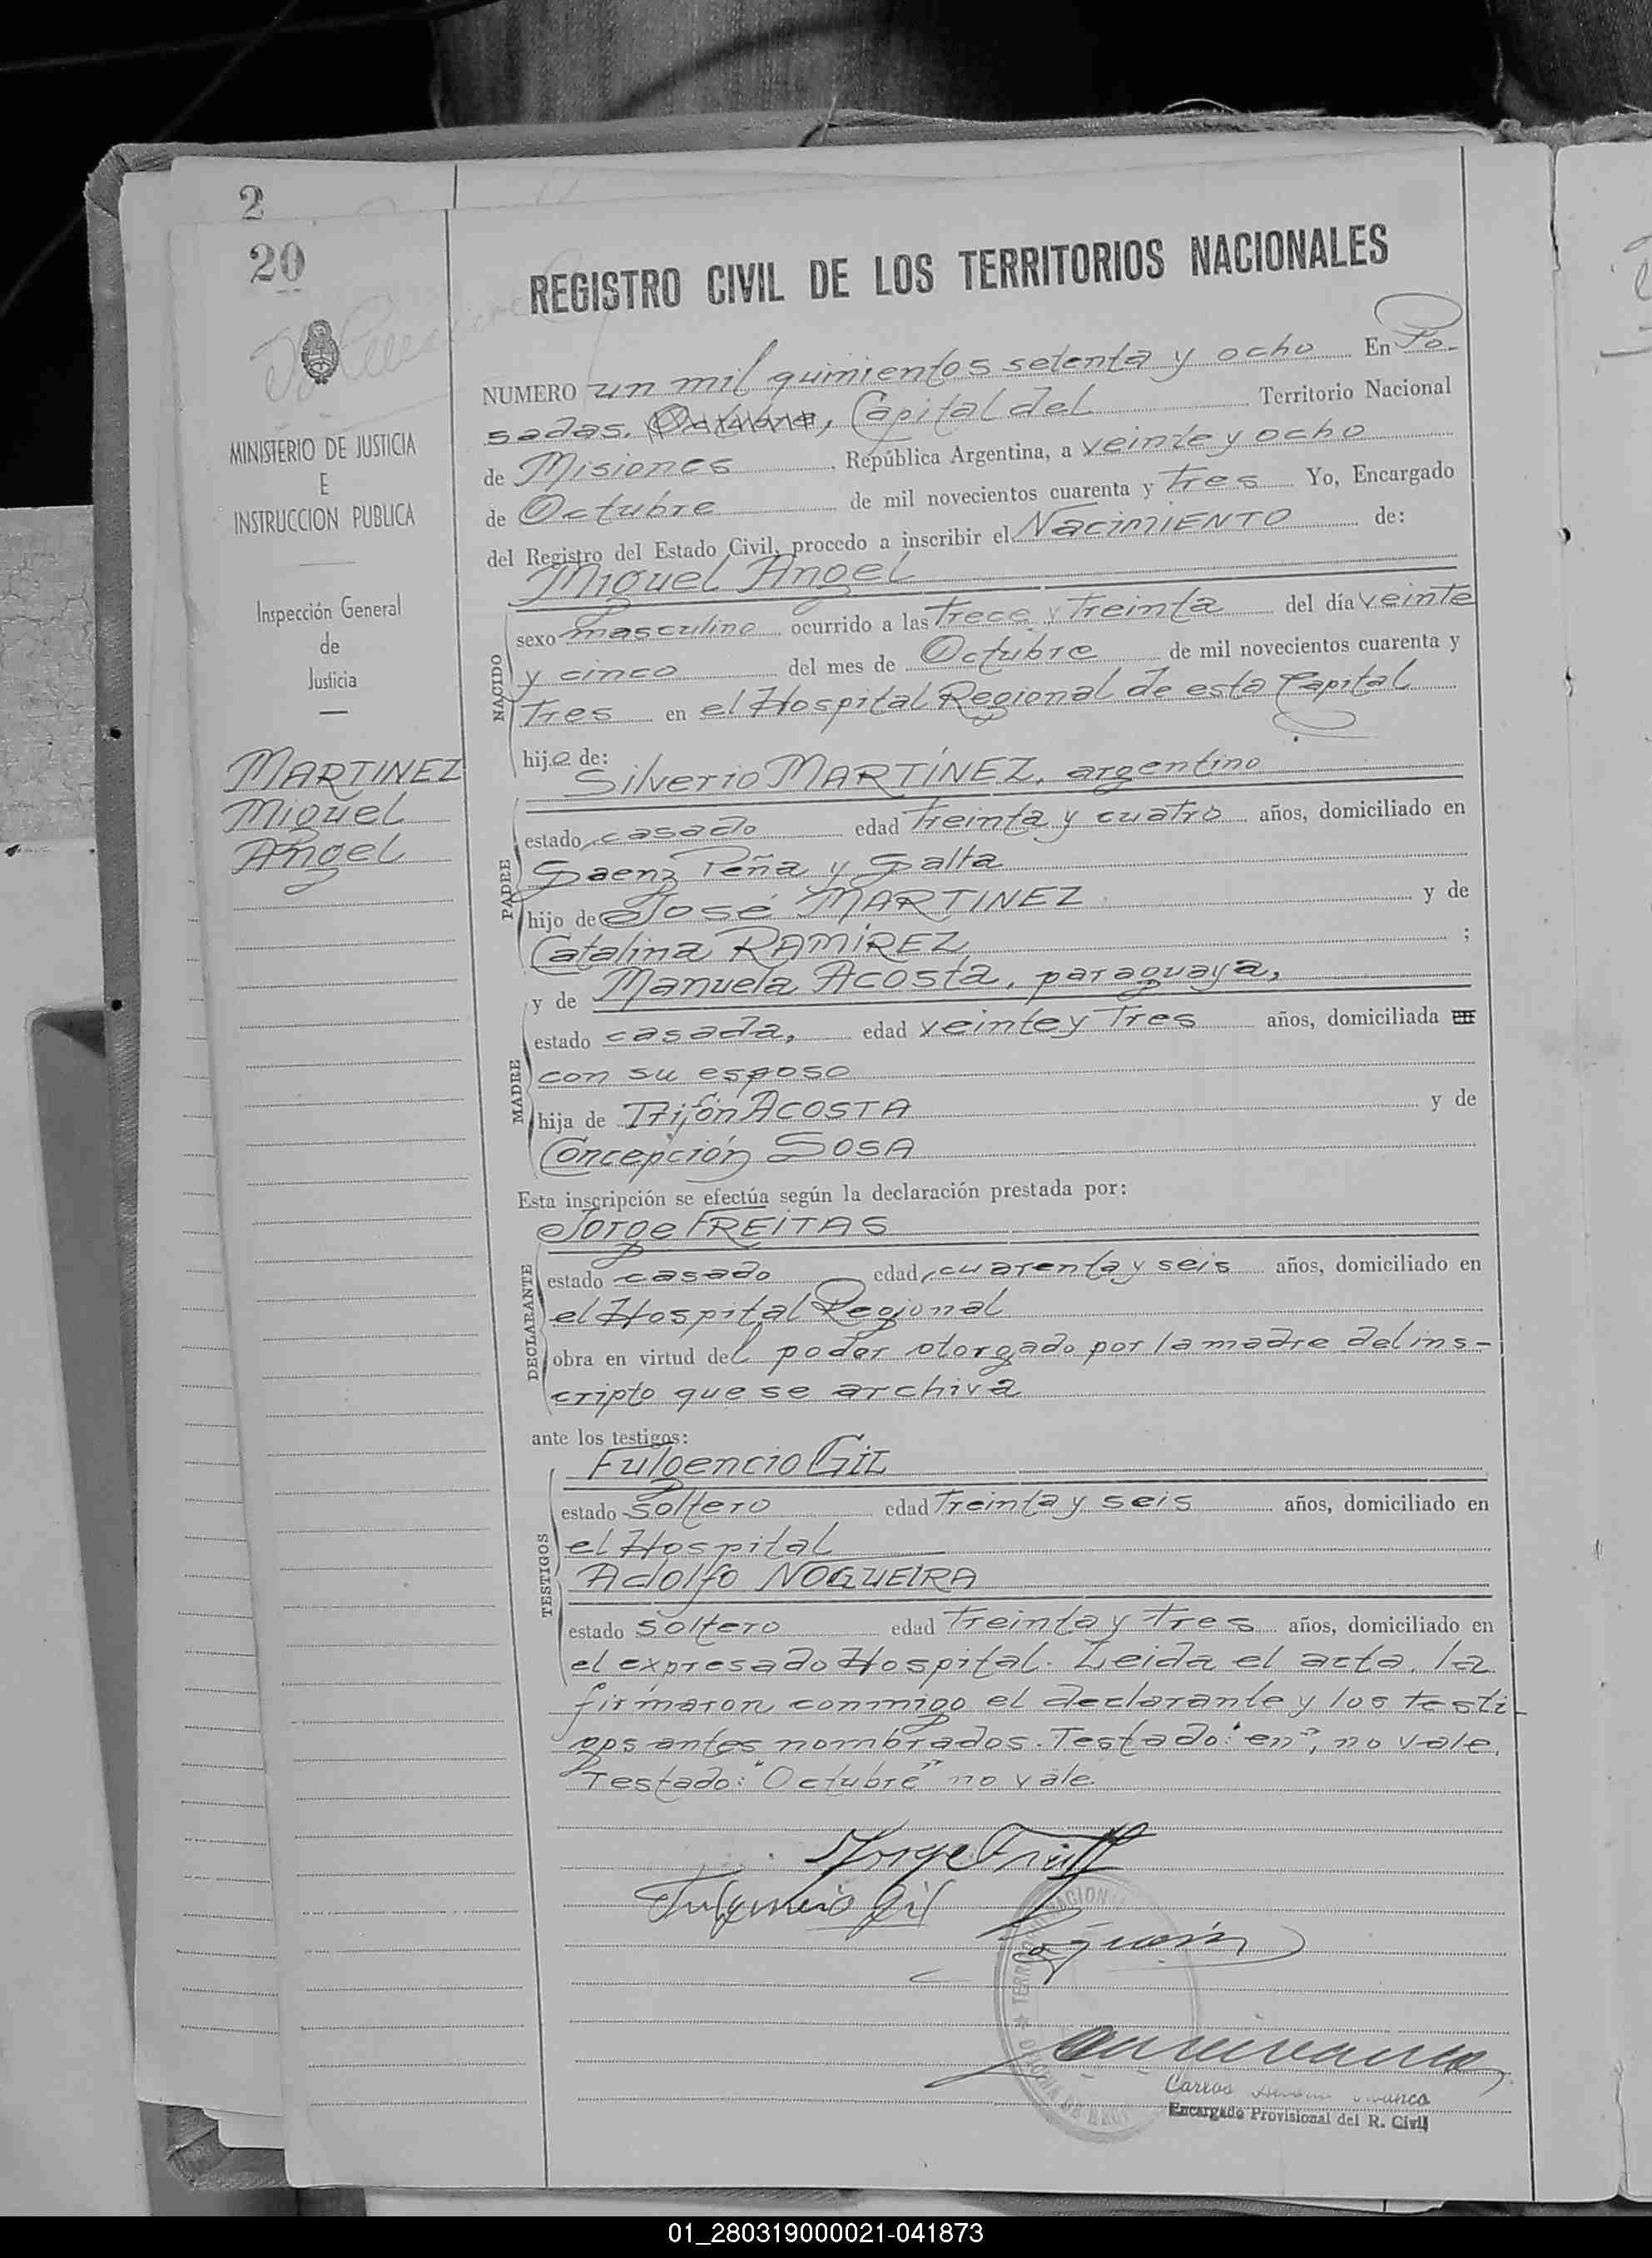 2
20
REGISTRO CIVIL DE LOS TERRITORIOS NACIONALES
MINISTERIO DE JUSTICIA
E
INSTRUCCION PUBLICA
Inspección General
de
Justicia
MARTINEZ
Miguel
Angel
NUMERO un mil quinientos setenta y ocho En Po-
sadas, Octubre, Capital del Territorio Nacional
de Misiones, República Argentina, a veinte y ocho
de Octubre de mil novecientos cuarenta y tres Yo, Encargado
del Registro del Estado Civil, procedo a inscribir el NaciMIENTO de:
Miguel Angel
NACIDO
sexo masculino ocurrido a las trece y treinta del día veinte
y cinco del mes de Octubre de mil novecientos cuarenta y
tres en el Hospital Regional de esta Capital
hijo de:
Silverio MARTÍNEZ, argentino
PADRE
estado casado edad treinta y cuatro años, domiciliado en
Saenz Peña y Salta
hijo de José MARTINEZ y de
Catalina RAMÍREZ ;
y de Manuela Acosta, paraguaya,
MADRE
estado casada, edad veinte y tres años, domiciliada en
con su esposo
hija de Trifón ACOSTA y de
Concepción SOSA
Esta inscripción se efectúa según la declaración prestada por:
Jorge FREITAS
DECLARANTE
estado casado edad cuarenta y seis años, domiciliado en
el Hospital Regional
obra en virtud del poder otorgado por la madre del ins-
cripto que se archiva
ante los testigos:
Fulgencio GIL
TESTIGOS
estado soltero edad treinta y seis años, domiciliado en
el Hospital
Adolfo NOGUEIRA
estado soltero edad treinta y tres años, domiciliado en
el expresado Hospital. Leida el acta, la
firmaron conmigo el declarante y los testi-
gos antes nombrados. Testado: "en", no vale.
Testado: "Octubre" no vale.
Fulgencio Gil
Carlos
Encargado Provisional del R. Civil
01_280319000021-041873